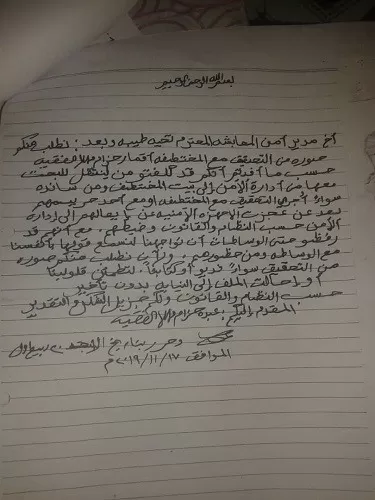 بسم الله الرحمن الرحيم
أخ مدير أمن المعافر المحترم تحيه طيبه وبعد: نطلب منكم
صوره من التحقيق مع المختطفه أقمار حزام الفقيه
حسب ما أفدتم أنكم قد كلفتو من ينتقل للبحث
معها من أدارة الأمن إلى بيت المختطف ومن سانده
سواءً أجري التحقيق مع المختطفه أو مع أحد حريمهم
بعد عن عجزت الاجهزه الأمنيه عن إيصالهم إلى إدارة
الأمن حسب النظام والقانون وضبطهم. مع أنهم قد
رفضو حتى الوساطات أن تواجهنا لنسمع قولها بأنفسنا
مع الوساطه ومن حضورهم. والآن نطلب منكم صوره
من التحقيق سواءً فديو أو كتابةً. لتطمئن قلوبنا
أو إحالت الملف إلى النيابه بدون تأخير
حسب النظام والقانون ولكم جزيل الشكر والتقدير
المقدم إليكم: عبده حزام الفقيه
وحرر بتاريخ الأحد ٢٠ ربيع أول
الموافق ٢٠١٩/١١/١٧م